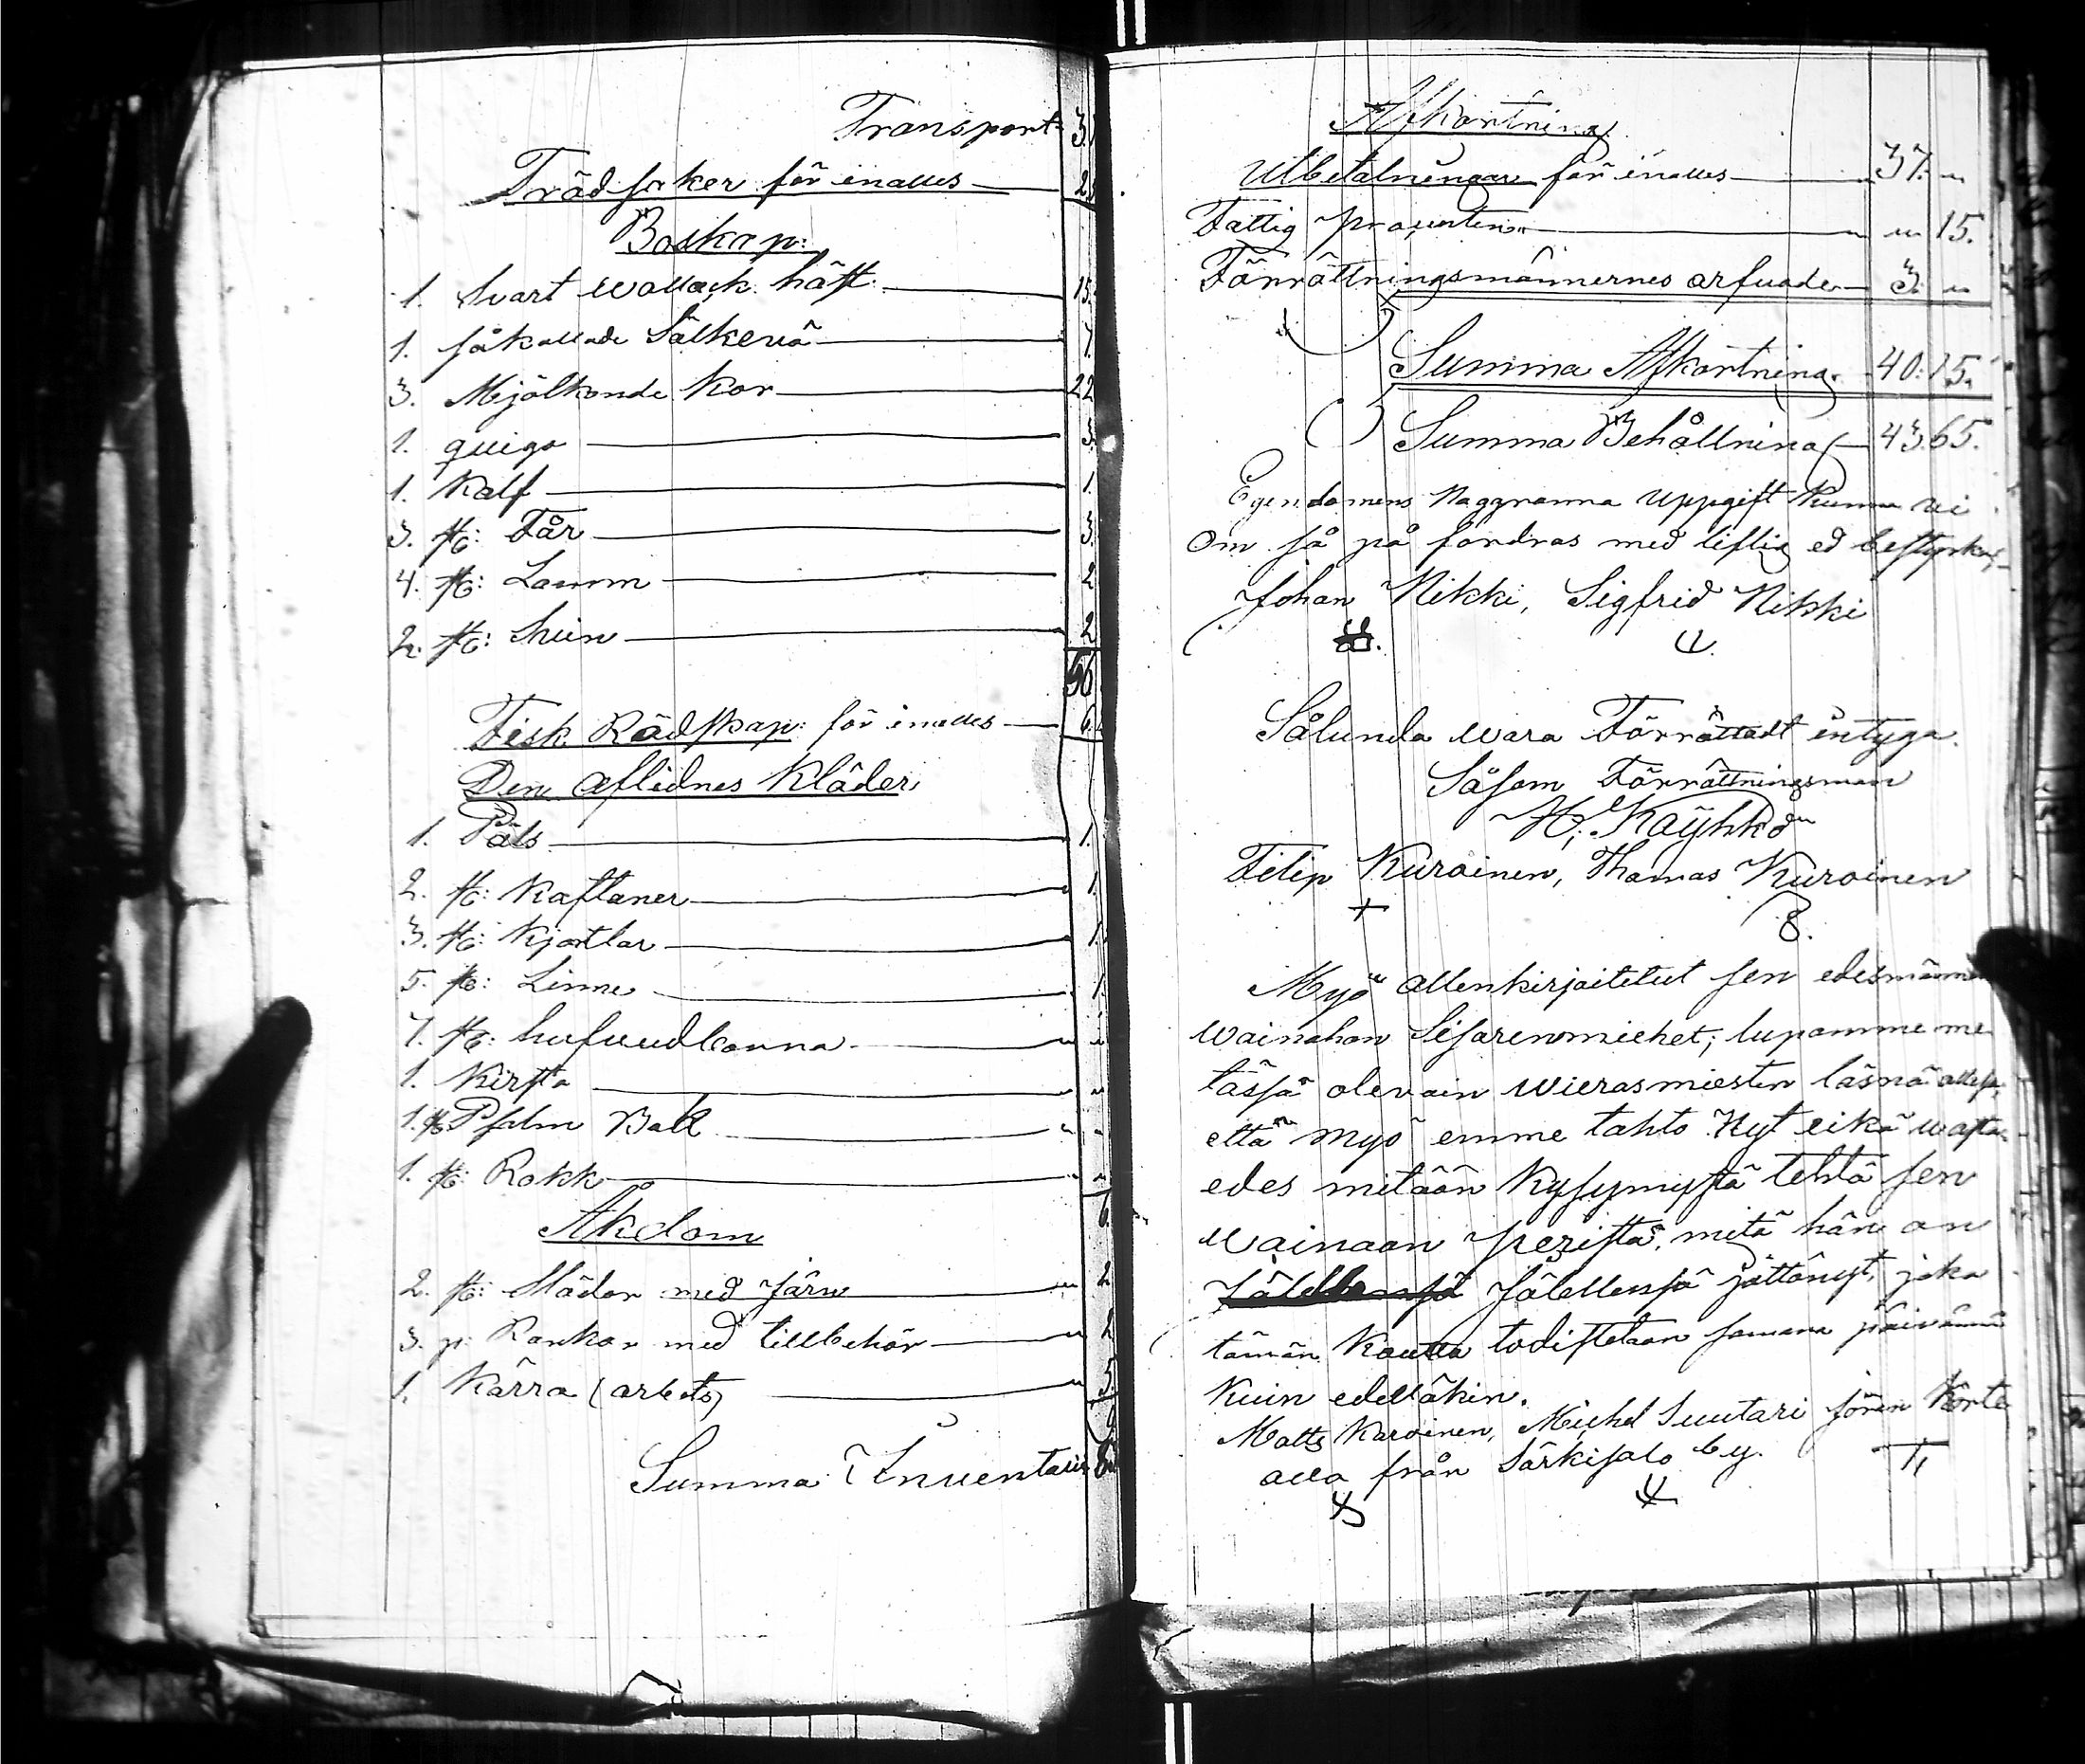 Transport 3
Träd saker för inalles — 2
Boskap:
1. Svart wallack häst — 15
1. så kallade Sälkeriä — 7
3. Mjölkande Kor — 22
1. quiga — 3
1. Kalf — 1
3. st: Får — 3
4. st: Lamm — 2
2. st: Suin — 2
56
Fisk Rädskap: för inalles — 6
Den aflidnes Kläder
1. Päls — 1.
2. st: Kaftaner — 1
3. st: Kjortlar — 1.
5. st: Linne — 1
7. st: hufvudbonna — "
1. Kirsta — "
1. st. Psalm Bok — "
1. st: Rokk — "
6
Åkdom
2. st: Slädor med Järn — 2
3. p: Rankor med tillbehör — 2
1. Kärra (arbets) — 5
9
Summa Inventari
Afkortning
Utbetalningar för inalles — 37. "
Fattig procenten — " 15.
Förrättningsmännernes arfvode — 3. "
Summa Afkortning. 40:15.
Summa Behållning — 43,65.
Egendomens Noggranna uppgift kunna vi
Om så på fordras med liflig ed bestyrka,
Johan Nikki, Sigfrid Nikki
Sålunda wara Förrättadt intyga.
Såsom Förrättningsman
H. Käyhkö
Filip Kuroinen, Thomas Kuroinen
Myö allenkirjoitetut sen edesmänn
wainahan Sisarenmiehet; lupamme me
tässä olevain wierasmiesten läsnä ollessa,
että myö emme tahto Nyt eikä wasta
edes mitään Kysymystä tehtä sen
wainaan perästä, mitä hän on
Jälellensä Jälellensä jättänyt, joka
tämän Kautta todistetaan samana päivänä
Kuin edelläkin.
Matts Karoinen, Michel Suutari Jören Korte
alla från Särkisalo by.